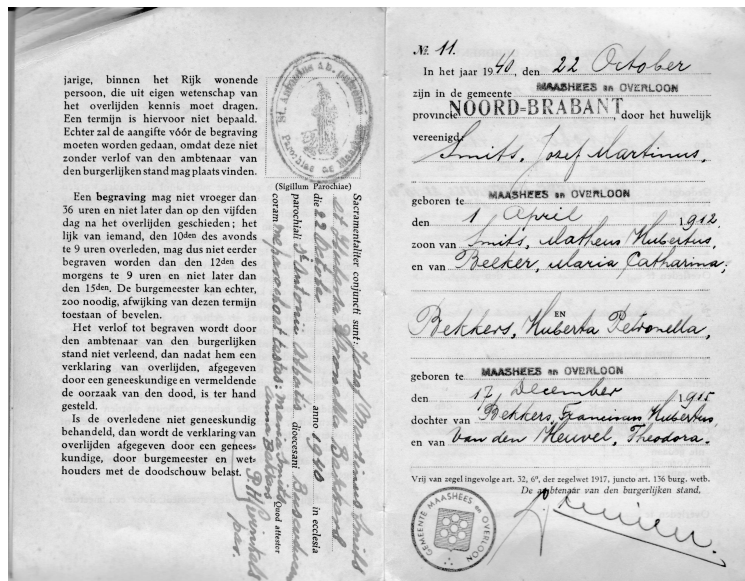 jarige, binnen het Rijk wonende
persoon, die uit eigen wetenschap van
het overlijden kennis moet dragen.
Een termijn is hiervoor niet bepaald.
Echter zal de aangifte vóór de begraving
moeten worden gedaan, omdat deze niet
zonder verlof van den ambtenaar van
den burgerlijken stand mag plaats vinden.
Een begraving mag niet vroeger dan
36 uren en niet later dan op den vijfden
dag na het overlijden geschieden; het
lijk van iemand, den 10den des avonds
te 9 uren overleden, mag dus niet eerder
begraven worden dan den 12den des
morgens te 9 uren en niet later dan
den 15den. De burgemeester kan echter,
zoo noodig, afwijking van dezen termijn
toestaan of bevelen.
Het verlof tot begraven wordt door
den ambtenaar van den burgerlijken
stand niet verleend, dan nadat hem een
verklaring van overlijden, afgegeven
door een geneeskundige en vermeldende
de oorzaak van den dood, is ter hand
gesteld.
Is de overledene niet geneeskundig
behandeld, dan wordt de verklaring van
overlijden afgegeven door een genees-
kundige, door burgemeester en wet-
houders met de doodschouw belast.
(Sigillum Parochiae)
Sacramentaliter conjuncti sunt: Josef Martinus Smits
et
die 22 Octobr. anno 1940 in ecclesia
parochiali St Antonii Abbatis dioecesani
coram me parocho et testes:
Quod attestor
№ 11.
In het jaar 1940, den 22 October
zijn in de gemeente MAASHEES en OVERLOON
provincie NOORD-BRABANT, door het huwelijk
vereenigd:
Smits, Jozef Martinus,
geboren te MAASHEES en OVERLOON
den 1 April 1912
zoon van Smits, Matheus Hubertus,
en van Beeker, Maria Catharina;
EN
Bekkers, Huberta Petronella,
geboren te MAASHEES en OVERLOON
den 17 December 1915
dochter van Bekkers, Franciscus Hubertus,
en van Van den Heuvel, Theodora.
Vrij van zegel ingevolge art. 32, 6°, der zegelwet 1917, juncto art. 136 burg. wetb.
De ambtenaar van den burgerlijken stand.
GEMEENTE MAASHEES en OVERLOON